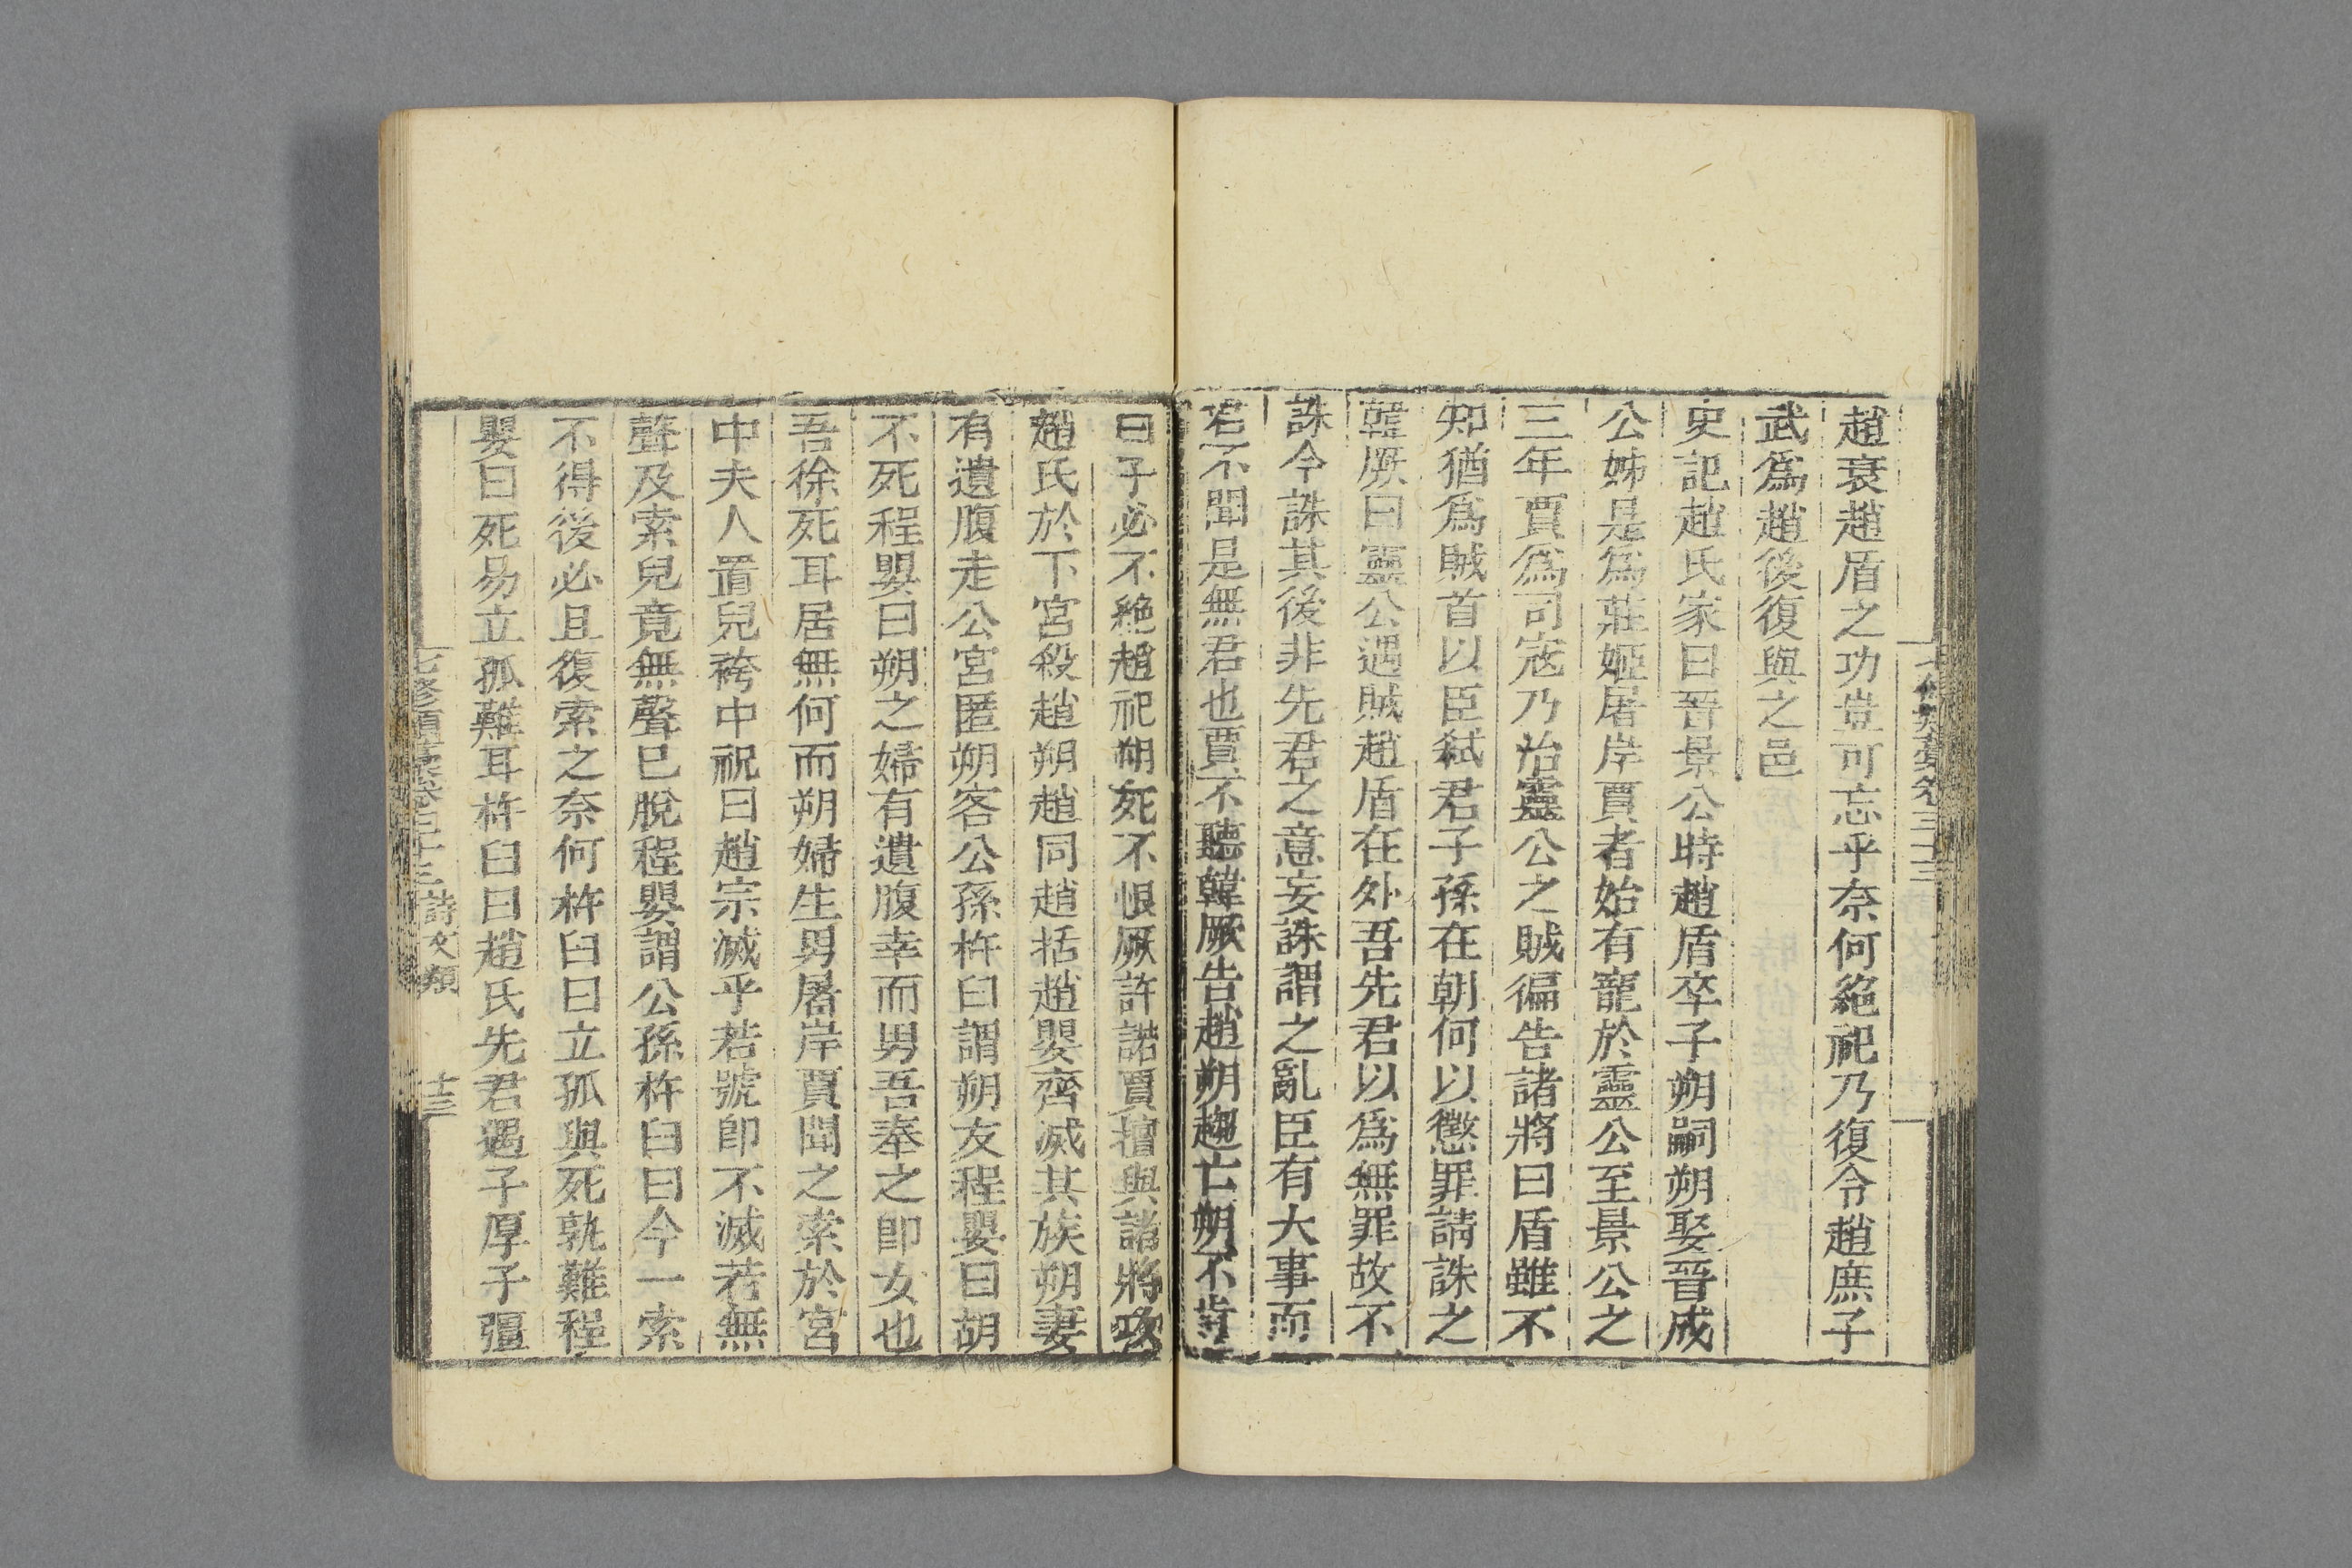 趙衰趙盾之功豈可忘乎奈何絕祀乃復令趙庶子
武爲趙後復與之邑
史記趙氏家曰晉景公時趙盾卒子朔嗣朔娶晉成
公姊是爲莊姬屠岸賈者始有寵於靈公至景公之
三年賈爲司寇乃治靈公之賊徧告諸將曰盾雖不
知猶爲賊首以臣弒君子孫在朝何以懲罪請誅之
韓厥曰靈公遇賊趙盾在外吾先君以爲無罪故不
誅今誅其後非先君之意妄誅謂之亂臣有大事而
君不聞是無君也賈不聽韓厥告趙朔趨亡朔不肯
曰子必不絶趙祀朔死不恨厥許諾賈擅與諸將攻
趙氏於下宮殺趙朔趙同趙括趙嬰齊滅其族朔妻
有遺腹走公宮匿朔客公孫杵臼謂朔友程嬰曰胡
不死程嬰曰朔之婦有遺腹幸而男吾奉之卽女也
吾徐死耳居無何而朔婦生男屠岸賈聞之索於宮
中夫人置兒袴中祝曰趙宗滅乎若號卽不滅若無
聲及索兒竟無聲已脫程嬰謂公孫杵臼曰今一索
不得後必且復索之奈何杵臼曰立孤與死孰難程
嬰曰死易立孤難耳杵臼曰趙氏先君遇子厚子彊
七修類藁卷二十三 詩文類 十三